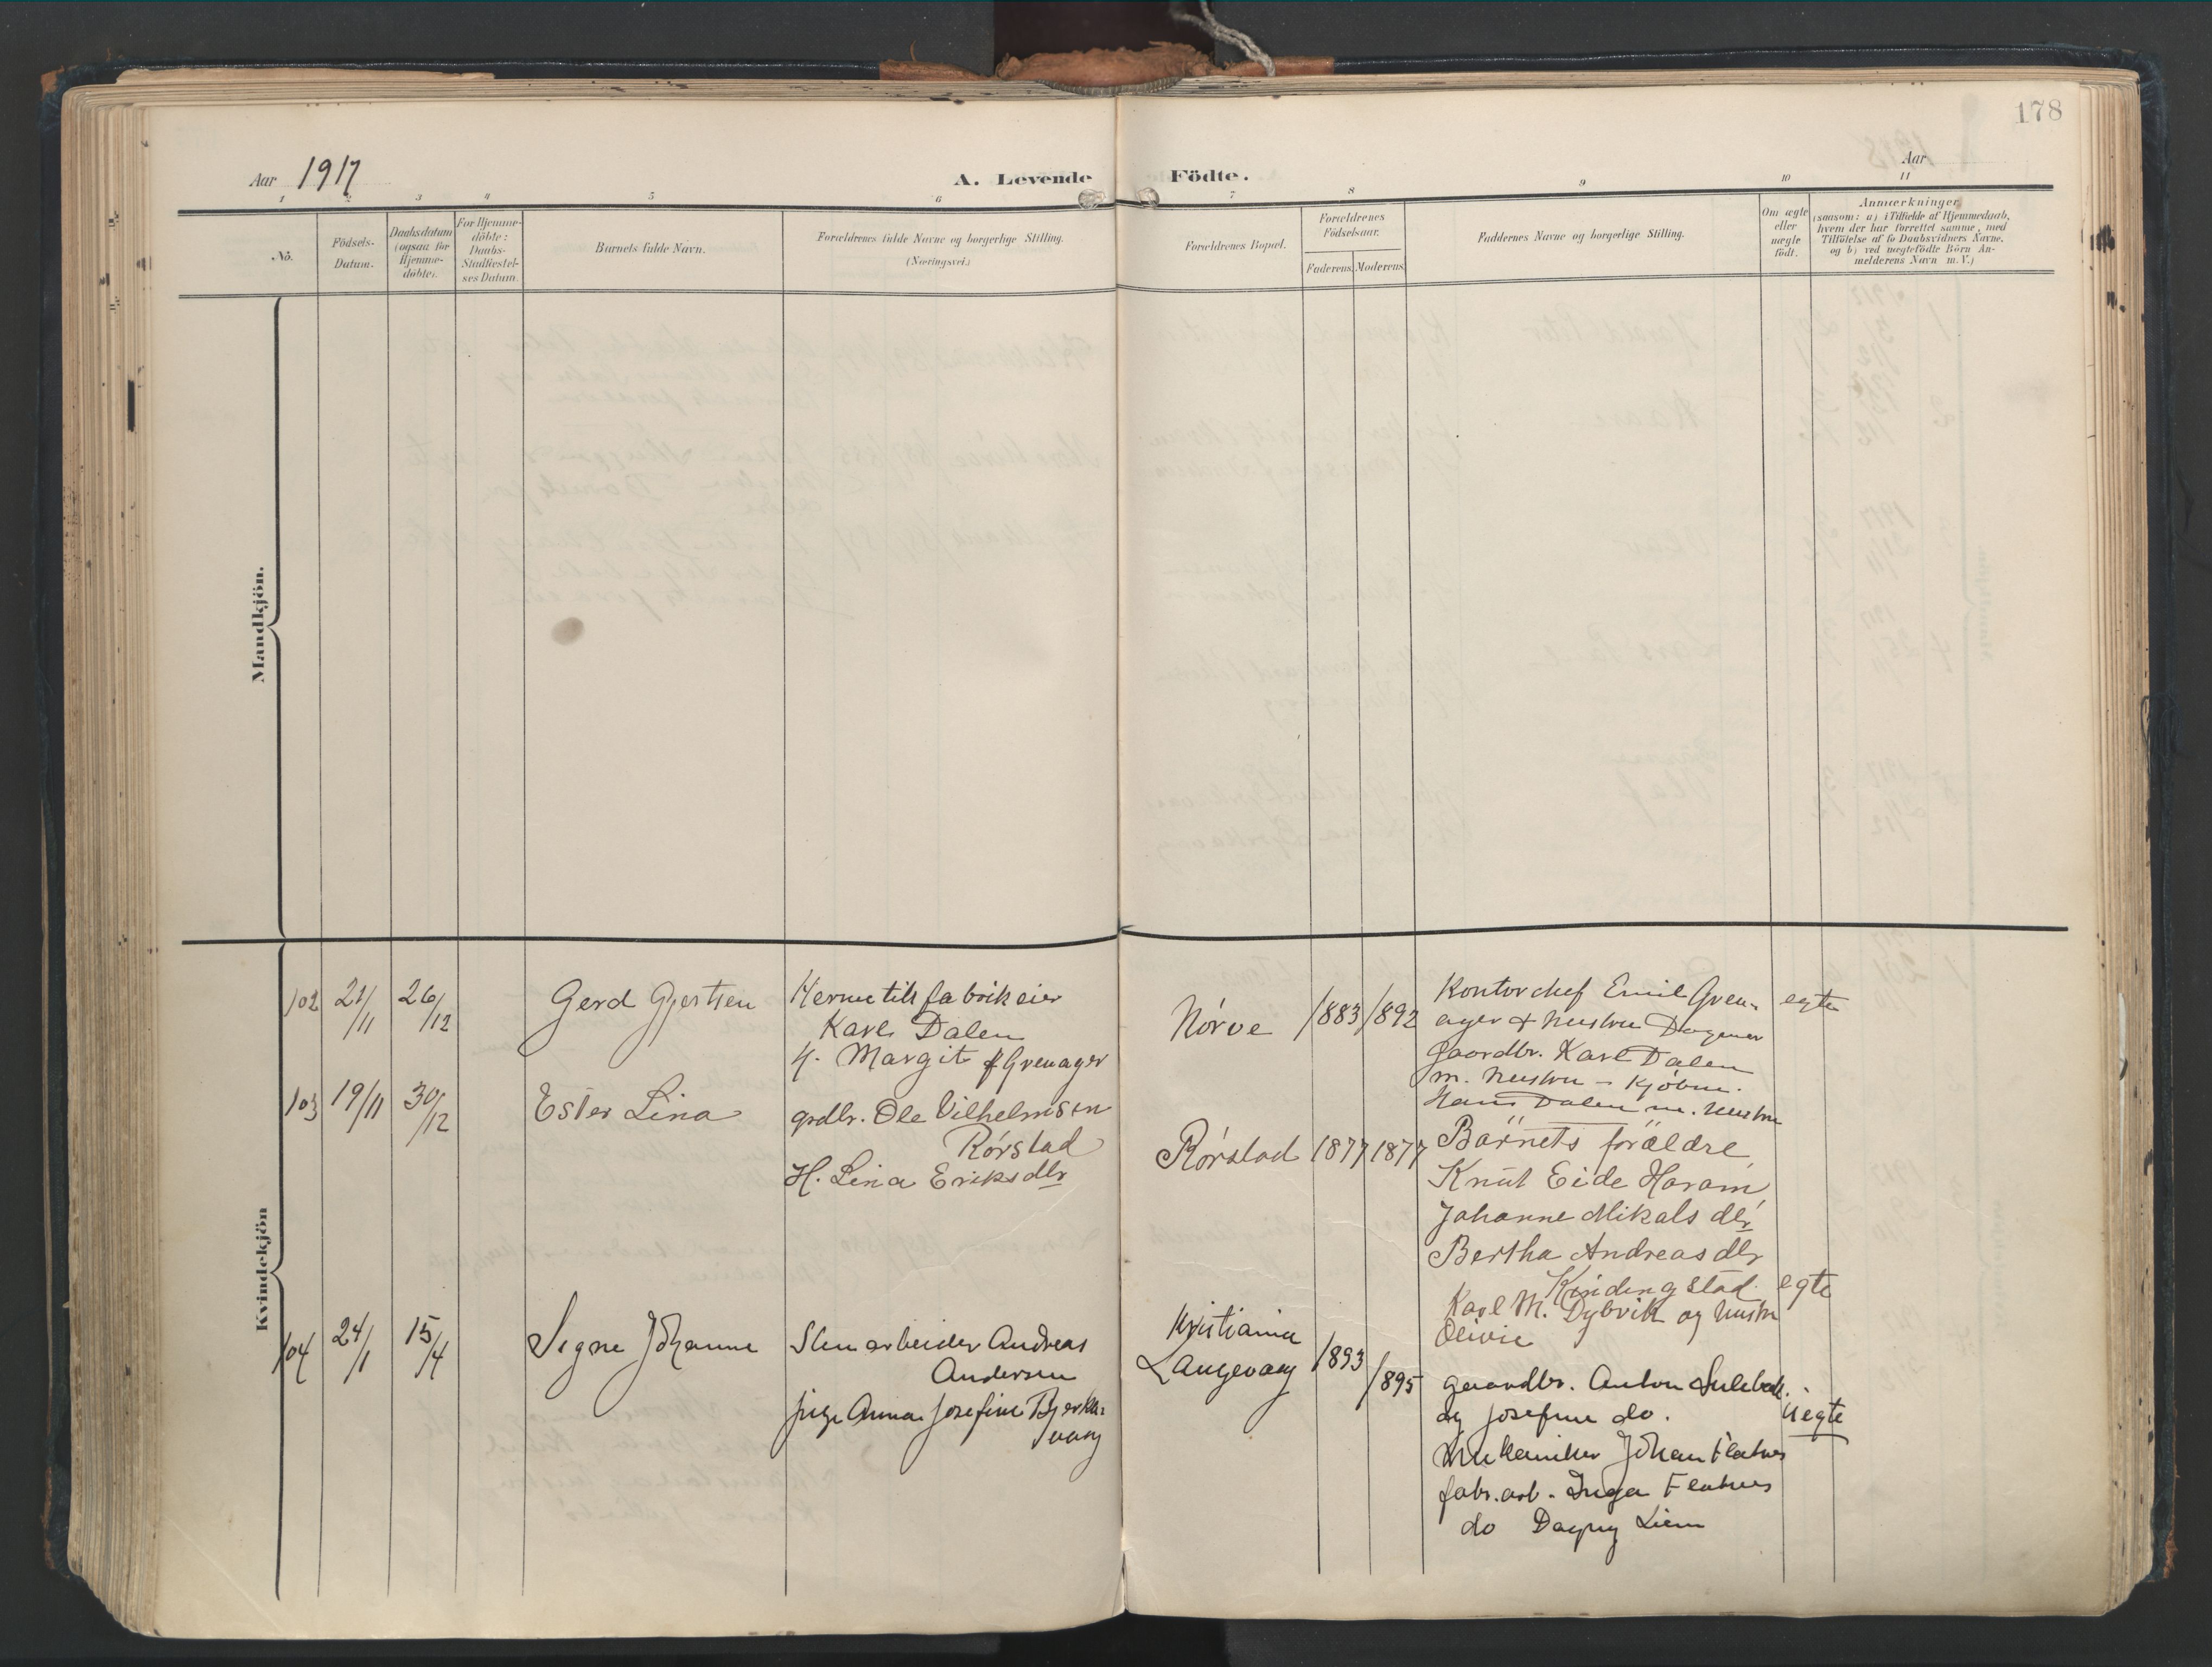 178
Aar 1917
A. Levende Födte.
Aar
1 2 3 4 5 6 7 8 9 10 11
No.
Födsels-
Datum.
Daabsdatum
(ogsaa for
Hjemme-
döbte).
For Hjemme-
döbte:
Daabs-
Stadfæstel-
ses Datum.
Barnets fulde Navn.
Forældrenes fulde Navne og borgerlige Stilling.
(Næringsvei.)
Forældrenes Bopæl.
Forældrenes
Födselsaar.
Faderens. Moderens.
Faddernes Navne og borgerlige Stilling.
Om ægte
eller
uægte
födt.
Anmærkninger
(saasom: a) i Tilfælde af Hjemmedaab,
hvem der har forrettet samme, med
Tilföielse af to Daabsvidners Navne,
og b) ved uægtefödte Börn An-
melderens Navn m. V.)
Mandkjön.
Kvindekjön
102 21/11 26/12 Gerd Gjertsen
Hermetikfabrikeier
Karl Dalen
H. Margit f Grenager
Nörve 1883 1892
Kontorchef Emil Gren-
ager & hustru Dagmar
Gaardbr. Karl Dalen
m. hustru - Kjöbm.
Hans Dalen m. hustru
egte
103 19/11 30/12 Ester Lina
grdbr. Ole Vilhelmsen
Rörstad
H. Lina Eriksdtr
Rörstad 1877 1877
Barnets forældre
Knut Eide Haram,
Johanne Mikalsdtr
Bertha Andreasdtr
Kindingstad
Karl M. Dybvik og hustru
Olivie
egte
104 24/1 15/4 Signe Johanne
Stenarbeider Andreas
Andersen
pige Anna Josefine Bjerka-
vaag
Kristiania
Langevaag
1893 1895
gaardbr. Anton Sulebak
og Josefine do.
Mekaniker Johan Flatnes
fabr.arb. Inga Flatnes
do Dagny Liem
uegte